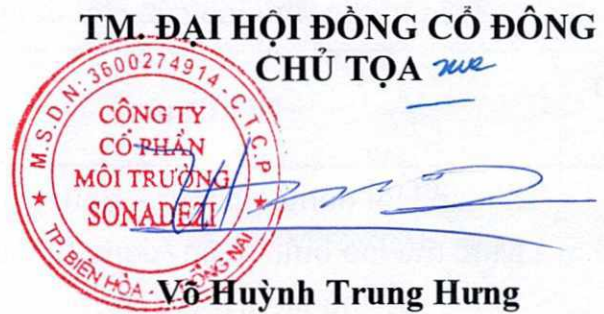 TM. ĐẠI HỘI ĐỒNG CỔ ĐÔNG
CHỦ TỌA
M.S.D.N: 3600274914 - C.T.C.P
CÔNG TY
CỔ PHẦN
MÔI TRƯỜNG
SONADEZI
TP. BIÊN HÒA - ĐỒNG NAI
Võ Huỳnh Trung Hưng